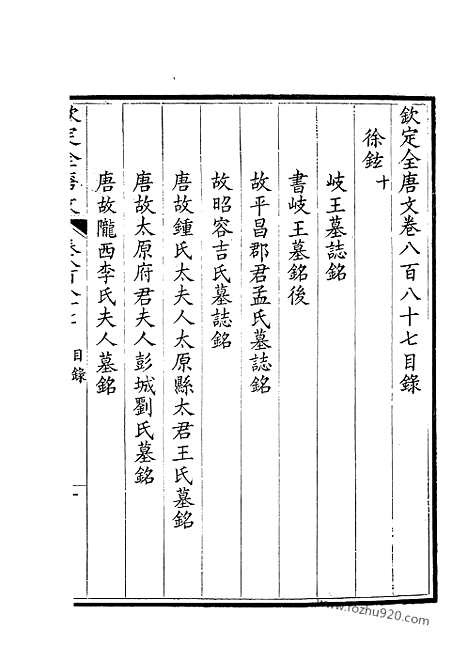 欽定全唐文卷八百八十七目錄
徐鉉十
岐王墓誌銘
書岐王墓銘後
故平昌郡君孟氏墓誌銘
故昭容吉氏墓誌銘
唐故鍾氏太夫人太原縣太君王氏墓銘
唐故太原府君夫人彭城劉氏墓銘
唐故隴西李氏夫人墓銘
欽定全唐文
卷八百八十七
目錄
一
www.rozhu920.com